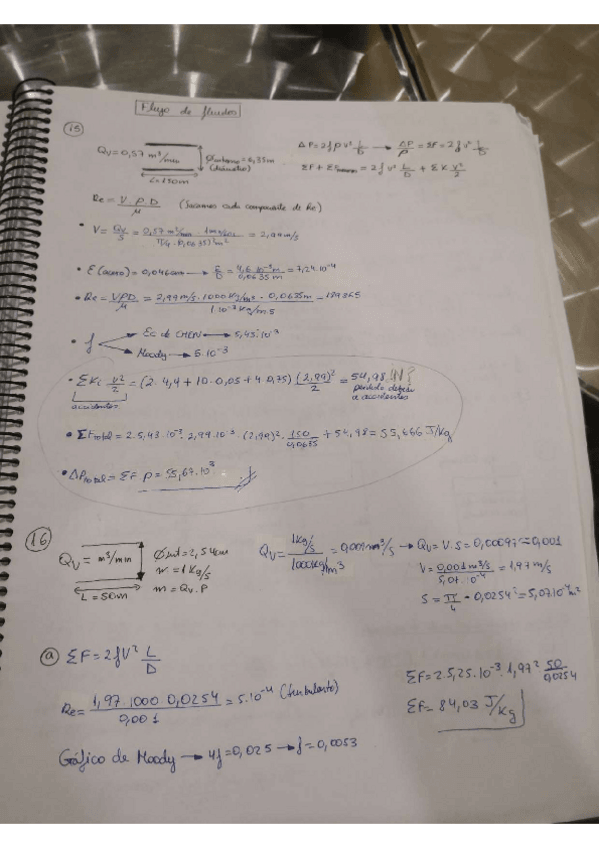 Flujo de fluidos
15
Qv = 0,57 m³/min
Ø interno = 6,35 m
(diámetro)
L = 150 m
ΔP = 2fρv² L/D → ΔP/ρ = ΣF = 2f v² L/D
= 2f v² L/D + ΣKi v²/2
Re = V·ρ·D/μ (Sacamos cada componente de Re)
• V = Qv/S = = 2,99 m/s
• E(acero) = 0,046 cm → E/D = 4,6·10⁻⁵ m/0,0635 m = 7,24·10⁻⁴
• Re = VρD/μ = 2,99 m/s · 1000 Kg/m³ · 0,0635 m/1·10⁻³ Kg/m·s = 189865
• f Ec de CHEN → 5,43·10⁻³
Moody → 5·10⁻³
• ΣKi v²/2 = (2·4,4 + 10·0,05 + 4·0,75) (2,99)²/2 = 54,98
accidentes
pérdida debida a accidentes
• ΣFtotal = 2·5,43·10⁻³·2,99·10⁻³·(2,99)²·150/0,0635 + 54,98 = 55,666 J/Kg
• ΔPtotal = ΣF·ρ = 55,67·10³
16
Qv = m³/min
Øint = 2,54 cm
m = 1 Kg/s
m = Qv·ρ
L = 50 m
Qv = 1 Kg/s/1000 Kg/m³ = 0,001 m³/s → Qv = V·S = 0,0009 = 0,001
V = 0,001 m³/s/5,07·10⁻⁴ = 1,97 m/s
S = π/4 · 0,0254² = 5,07·10⁻⁴ m²
a) ΣF = 2fV² L/D
Re = 1,97·1000·0,0254/0,001 = 5·10⁻⁴ (turbulento)
Gráfico de Moody → 4f = 0,025 → f = 0,0053
ΣF = 2·5,25·10⁻³·1,97² 50/0,0254
ΣF = 84,03 J/Kg